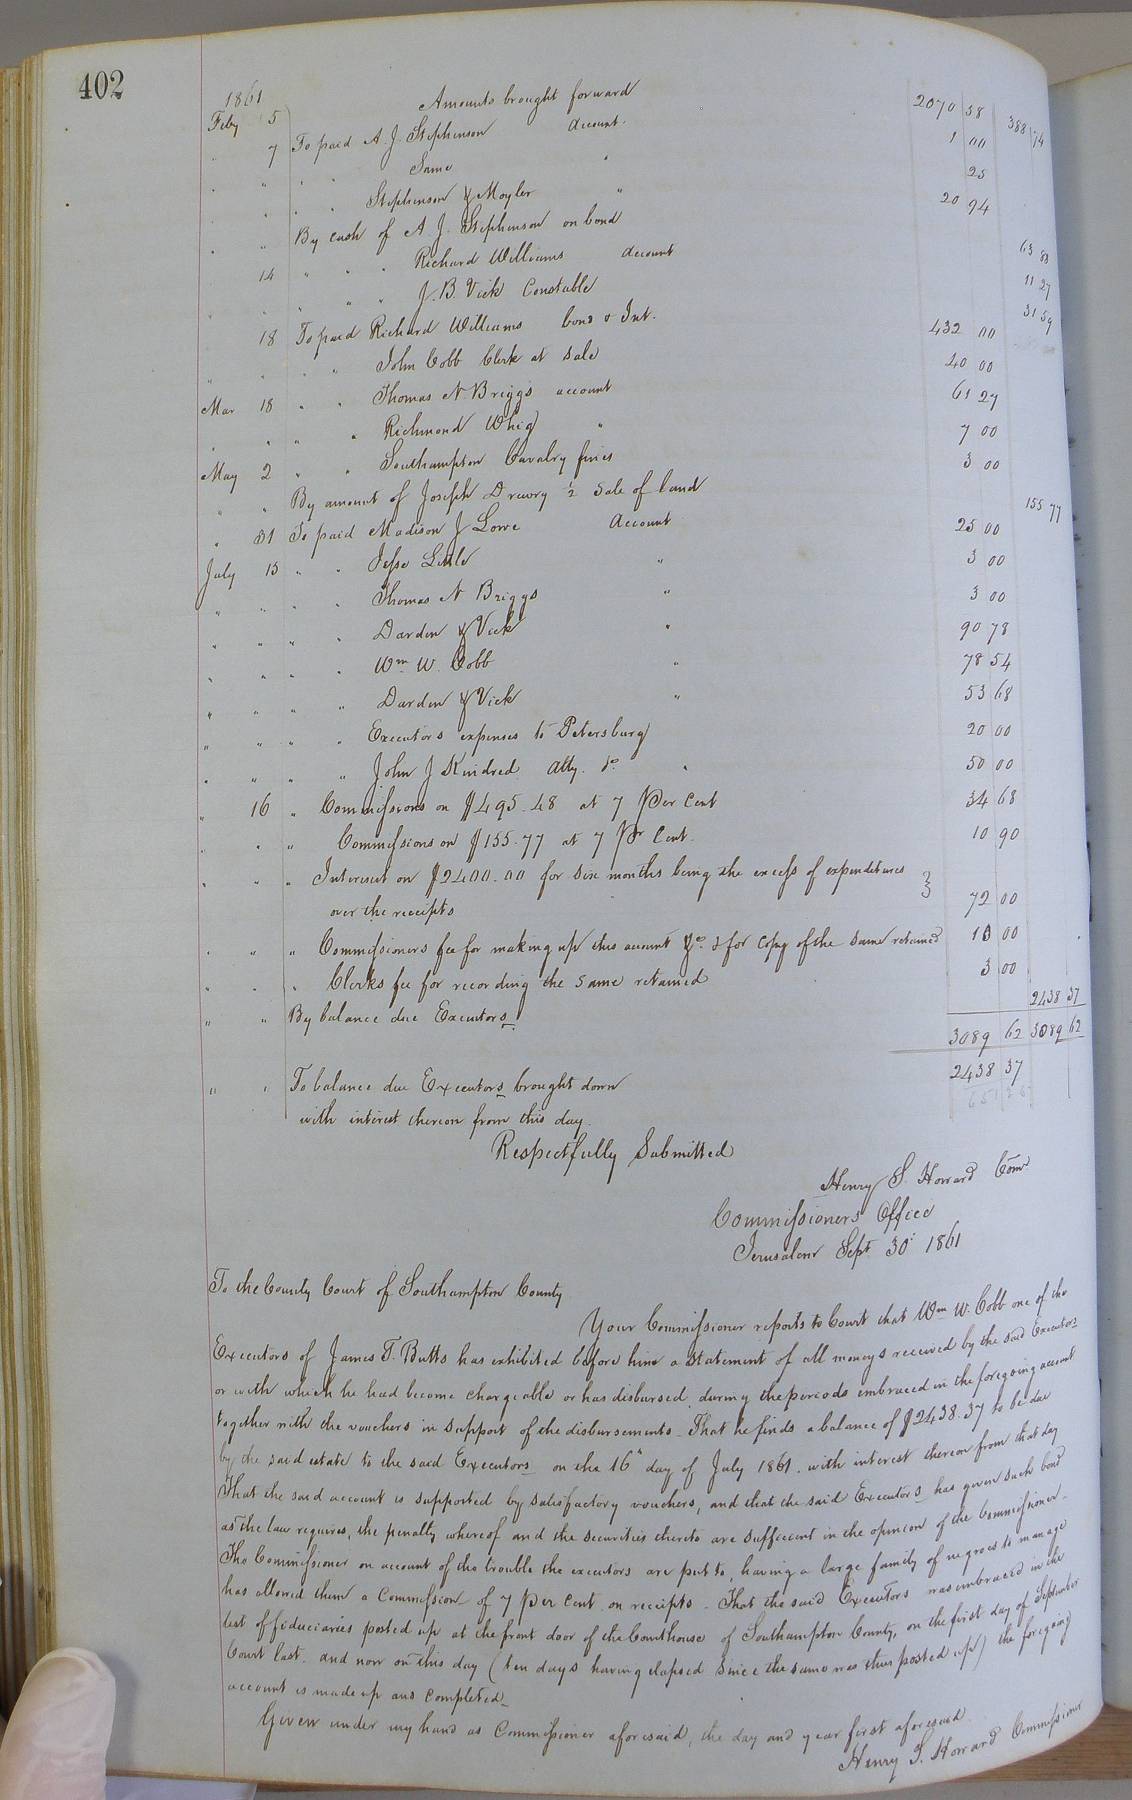 402
1861 Amounts brought forward 2070 58 388 74
Feby 5 To paid A. J. Stephenson account. 1 00
" 7 " " Same " 25
" " " " Stephenson & Moyler " 20 94
" " By cash of A J. Stephenson on bond 63 88
" 14 " " " Richard Williams account 11 27
" " " " " J. B. Vick Constable 31 59
" 18 To paid Richard Williams bond & Int. 432 00
" " " " John Cobb Clerk at Sale 40 00
Mar 18 " " Thomas N. Briggs account 61 27
" " " " Richmond Whig " 7 00
May 2 " " Southampton Cavalry fines 3 00
" " By amount of Joseph Drewry ½ Sale of land 155 77
" 31 To paid Madison J Lowe Account 25 00
July 15 " " Jesse Little " 3 00
" " " " Thomas N Briggs " 3 00
" " " " Darden & Vick " 90 78
" " " " Wm W. Cobb " 78 54
" " " " Darden & Vick " 53 68
" " " " Executors expenses to Petersburg 20 00
" " " " John J Kindred Atty. do " 50 00
" 16 " Commissions on $495.48 at 7 Per Cent 34 68
" " " Commissions on $155.77 at 7 Pr Cent. 10 90
" " " Interest on $2400.00 for six months being the excess of expenditures
over the receipts 72 00
" " " Commissioners fee for making up this account &c. & for copy of the same retained 13 00
" " " Clerks fee for recording the same retained 3 00
" " By balance due Executors 2438 37
3089 62 3089 62
" " To balance due Executors brought down 2438 37
with interest thereon from this day. 651 25
Respectfully Submitted
Henry S. Howard Comr
Commissioners Office
Jerusalem Sept. 30 1861
To the County Court of Southampton County
Your Commissioner reports to Court that Wm W. Cobb one of the
Executors of James T. Butts has exhibited before him a statement of all moneys received by the said Executors
or with which he had become chargeable or has disbursed, during the periods embraced in the foregoing account
together with the vouchers in support of the disbursements. That he finds a balance of $2438.37 to be due
by the said estate to the said Executors on the 16" day of July 1861. with interest thereon from that day
That the said account is supported by satisfactory vouchers, and that the said Executors has given such bond
as the law requires, the penalty whereof and the securities thereto are sufficient in the opinion of the Commissioner.
The Commissioner on account of the trouble the executors are put to, having a large family of negroes to manage
has allowed them a Commission of 7 Per Cent on receipts. That the said Executors was embraced in the
list of fiduciaries posted up at the front door of the Courthouse of Southampton County, on the first day of September
Court last. and now on this day (ten days having elapsed since the same was thus posted up) the foregoing
account is made up and completed.
Given under my hand as Commissioner aforesaid, the day and year first aforesaid
Henry S. Howard Commissioner